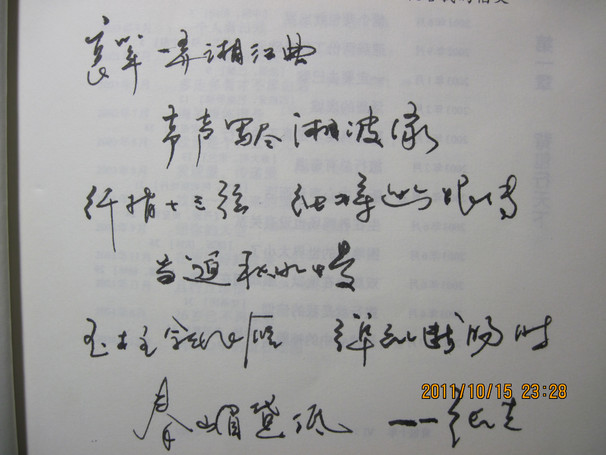 哀筝一弄湘江曲
声声写尽湘波绿
纤指十三弦 细将幽恨传
当筵秋水慢
玉柱斜飞雁 弹到断肠时
春山眉黛低 ——
2011/10/15 23:28